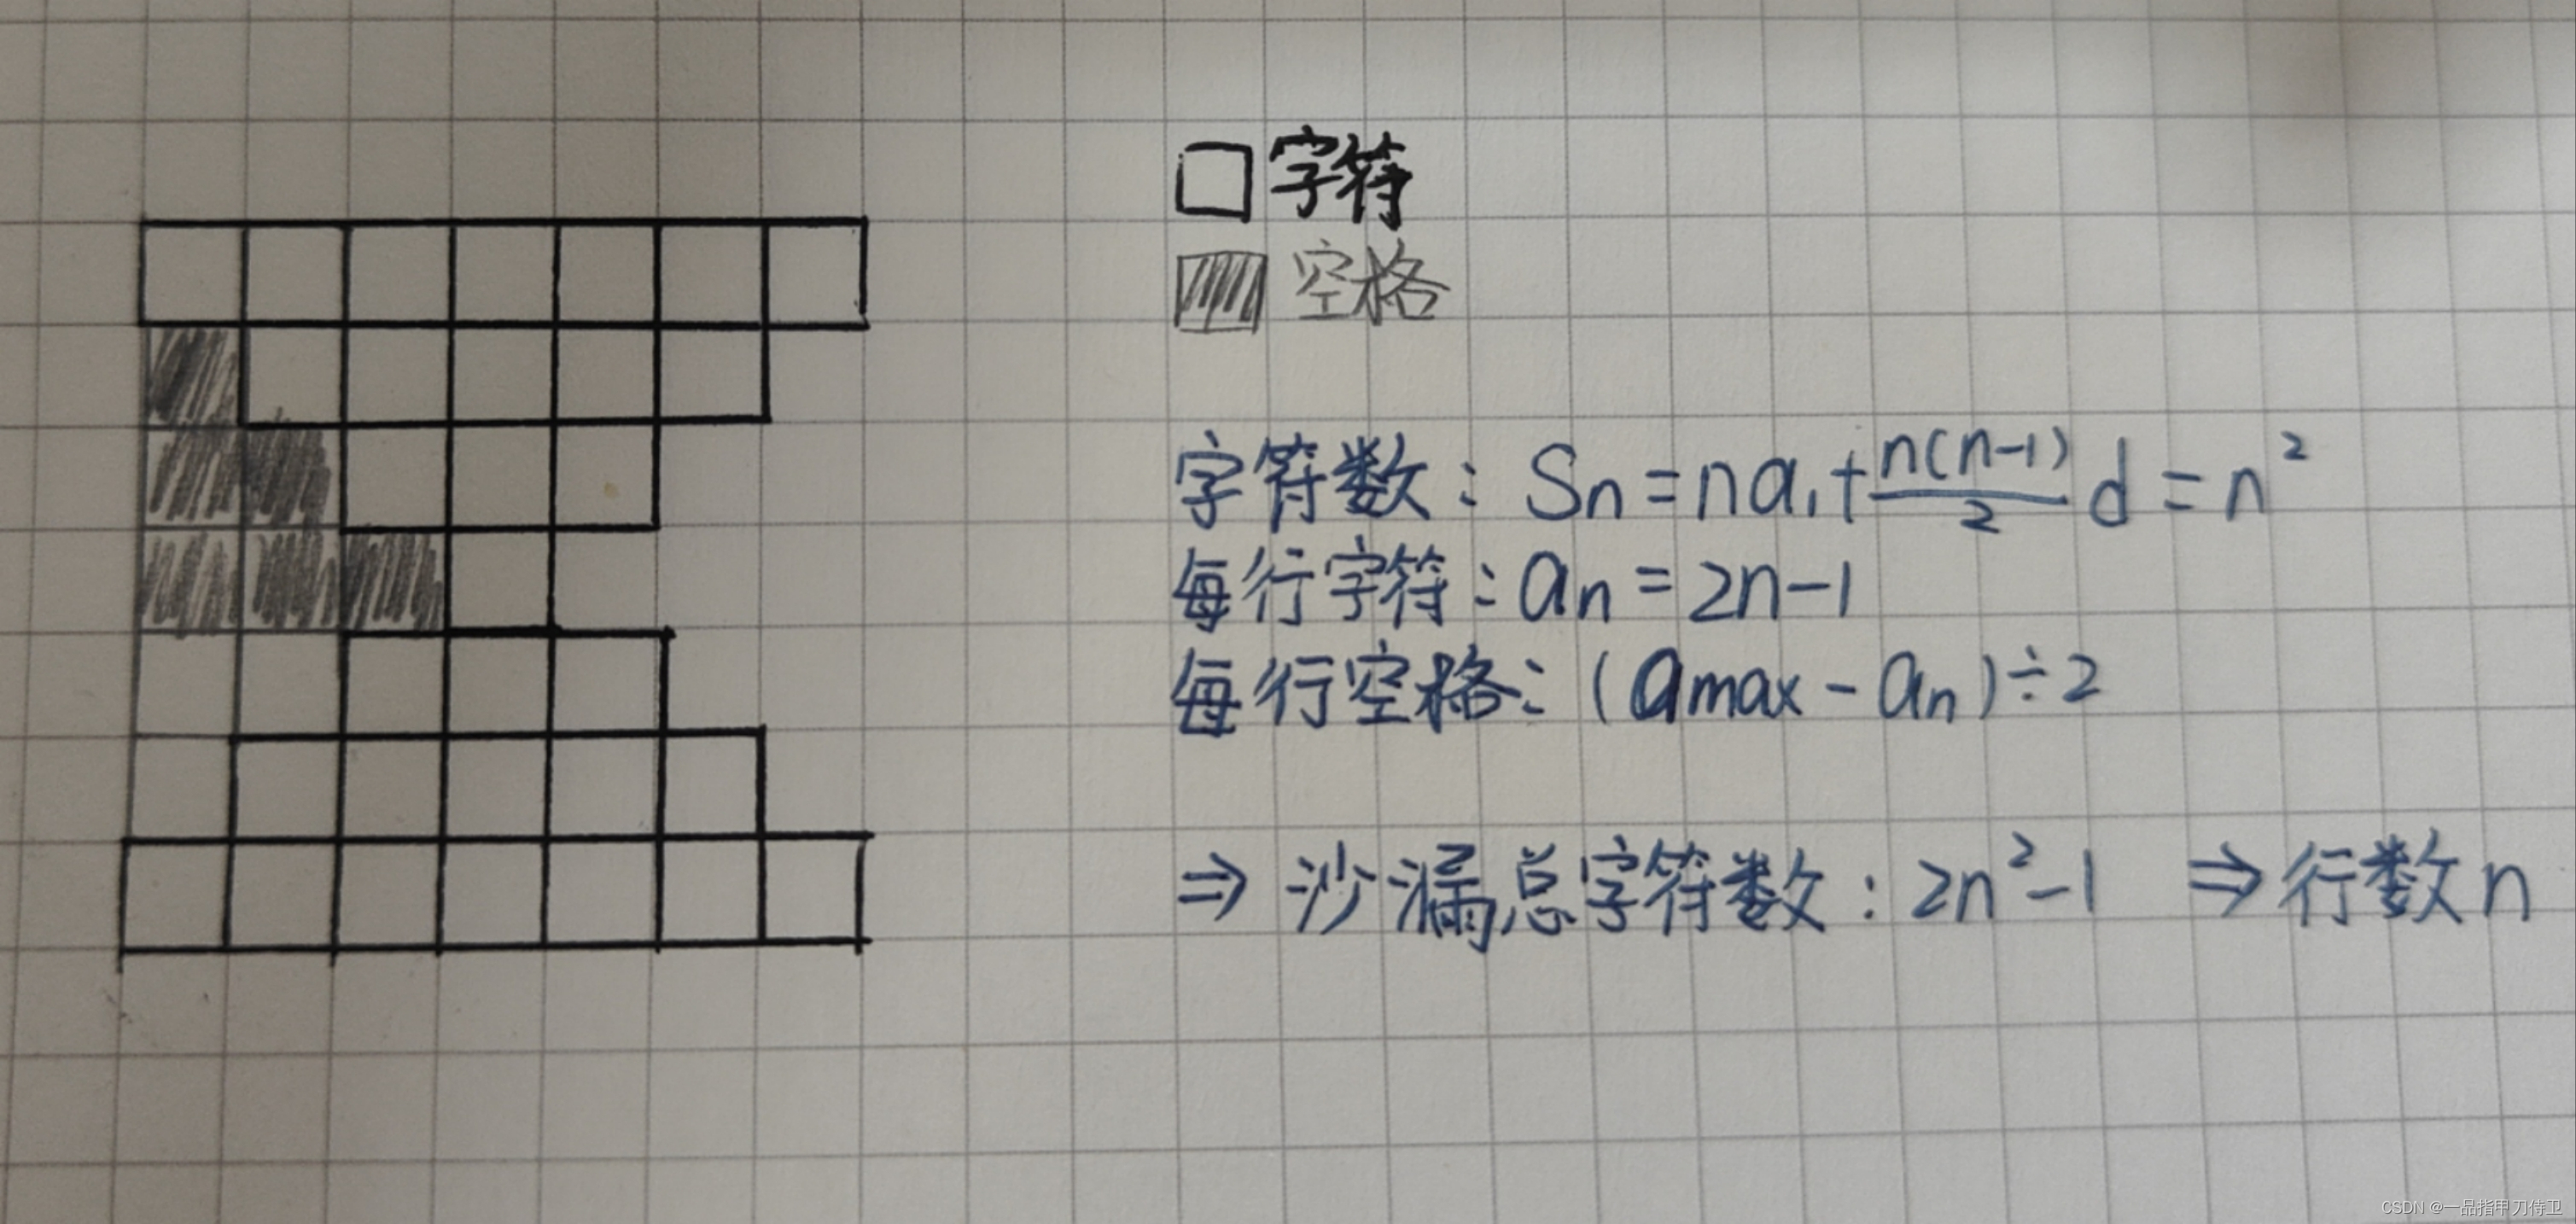 字符
空格
字符数：Sn=na₁+n(n-1)/2 d=n²
每行字符：an=2n-1
每行空格：(amax-an)÷2
⇒ 沙漏总字符数：2n²-1 ⇒行数n
CSDN @一品指甲刀侍卫